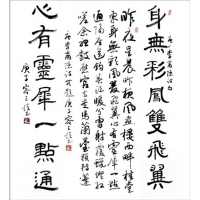 身無彩鳳雙飛翼
唐李商隱詩句
昨夜星辰昨夜風畫樓西畔桂堂
東身無彩鳳雙飛翼心有靈犀一點
通隔座送鉤春酒暖分曹射覆蠟燈紅
嗟余聽鼓應官去走馬蘭臺類轉蓬
唐李商隱詩無題庚子
心有靈犀一點通
庚子